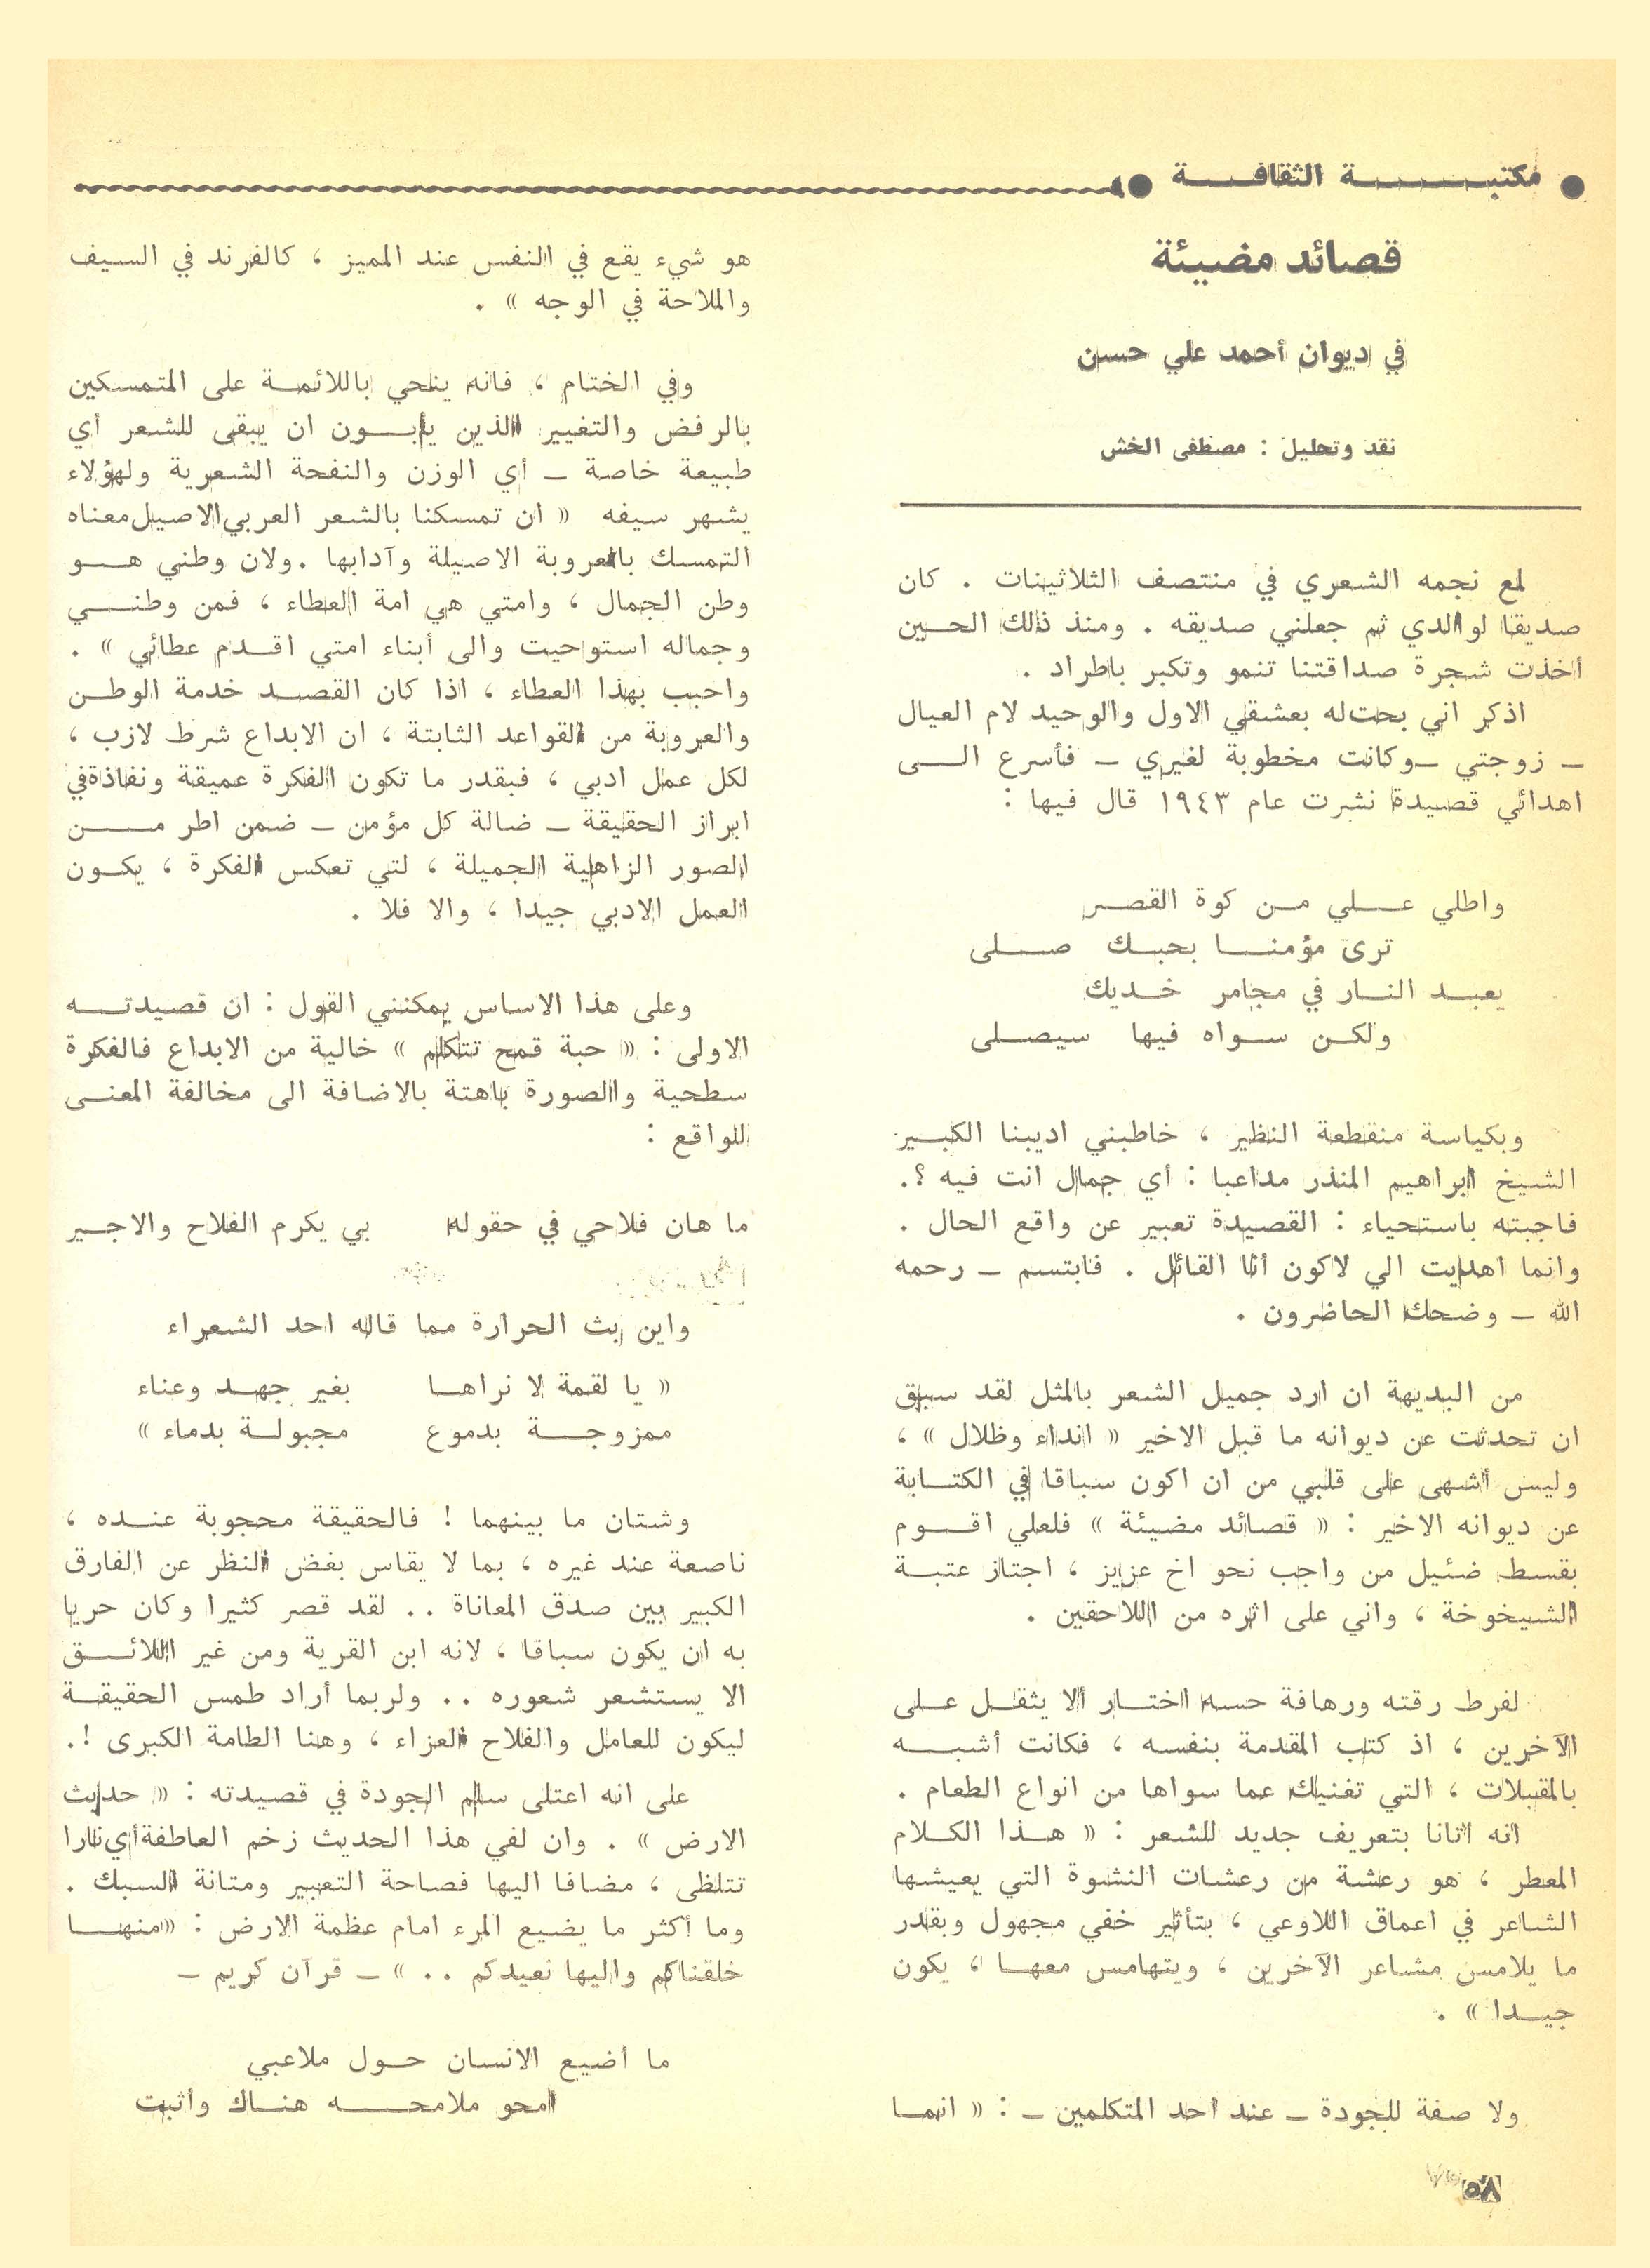 مكتبة الثقافة
قصائد مضيئة
في ديوان أحمد علي حسن
نقد وتحليل : مصطفى الخش
لمع نجمه الشعري في منتصف الثلاثينات . كان
صديقا لوالدي ثم جعلني صديقه . ومنذ ذلك الحين
أخذت شجرة صداقتنا تنمو وتكبر باطراد .
اذكر اني بحت له بعشقي الاول والوحيد لام العيال
ـ زوجتي ـ وكانت مخطوبة لغيري ـ فأسرع الى
اهدائي قصيدة نشرت عام ١٩٤٣ قال فيها :
واطلي علي من كوة القصر
ترى مؤمنا بحبك صلى
يعبد النار في مجامر خديك
ولكن سواه فيها سيصلى
وبكياسة منقطعة النظير ، خاطبني اديبنا الكبير
الشيخ ابراهيم المنذر مداعبا : أي جمال انت فيه ؟.
فاجبته باستحياء : القصيدة تعبير عن واقع الحال .
وانما اهديت الي لاكون أنا القائل . فابتسم ـ رحمه
الله ـ وضحك الحاضرون .
من البديهة ان ارد جميل الشعر بالمثل لقد سبق
ان تحدثت عن ديوانه ما قبل الاخير « انداء وظلال » ،
وليس أشهى على قلبي من ان اكون سباقا في الكتابة
عن ديوانه الاخير : « قصائد مضيئة » فلعلي اقوم
بقسط ضئيل من واجب نحو اخ عزيز ، اجتاز عتبة
الشيخوخة ، واني على اثره من اللاحقين .
لفرط رقته ورهافة حسه اختار الا يثقل على
الآخرين ، اذ كتب المقدمة بنفسه ، فكانت أشبه
بالمقبلات ، التي تغنيك عما سواها من انواع الطعام .
انه اتانا بتعريف جديد للشعر : « هذا الكلام
المعطر ، هو رعشة من رعشات النشوة التي يعيشها
الشاعر في اعماق اللاوعي ، بتأثير خفي مجهول وبقدر
ما يلامس مشاعر الآخرين ، ويتهامس معها ، يكون
جيدا » .
ولا صفة للجودة ـ عند احد المتكلمين ـ : « انما
هو شيء يقع في النفس عند المميز ، كالفرند في السيف
والملاحة في الوجه » .
وفي الختام ، فانه ينحي باللائمة على المتمسكين
بالرفض والتغيير الذين يأبون ان يبقى للشعر أي
طبيعة خاصة ـ أي الوزن والنفحة الشعرية ولهؤلاء
يشهر سيفه « ان تمسكنا بالشعر العربي الاصيل معناه
التمسك بالعروبة الاصيلة وآدابها . ولان وطني هو
وطن الجمال ، وامتي هي امة العطاء ، فمن وطني
وجماله استوحيت والى أبناء امتي اقدم عطائي » .
واحبب بهذا العطاء ، اذا كان القصد خدمة الوطن
والعروبة من القواعد الثابتة ، ان الابداع شرط لازب ،
لكل عمل ادبي ، فبقدر ما تكون الفكرة عميقة ونفاذة في
ابراز الحقيقة ـ ضالة كل مؤمن ـ ضمن اطر من
الصور الزاهية الجميلة ، لتي تعكس الفكرة ، يكون
العمل الادبي جيدا ، والا فلا .
وعلى هذا الاساس يمكنني القول : ان قصيدته
الاولى : « حبة قمح تتكلم » خالية من الابداع فالفكرة
سطحية والصورة باهتة بالاضافة الى مخالفة المعنى
للواقع :
ما هان فلاحي في حقوله بي يكرم الفلاح والاجير
واين بث الحرارة مما قاله احد الشعراء
« يا لقمة لا نراها بغير جهد وعناء
ممزوجة بدموع مجبولة بدماء »
وشتان ما بينهما ! فالحقيقة محجوبة عنده ،
ناصعة عند غيره ، بما لا يقاس بغض النظر عن الفارق
الكبير بين صدق المعاناة .. لقد قصر كثيرا وكان حريا
به ان يكون سباقا ، لانه ابن القرية ومن غير اللائق
الا يستشعر شعوره .. ولربما أراد طمس الحقيقة
ليكون للعامل والفلاح العزاء ، وهنا الطامة الكبرى !.
على انه اعتلى سلم الجودة في قصيدته : « حديث
الارض » . وان لفي هذا الحديث زخم العاطفة أي نارا
تتلظى ، مضافا اليها فصاحة التعبير ومتانة السبك .
وما أكثر ما يضيع المرء امام عظمة الارض : « منها
خلقناكم واليها نعيدكم .. » ـ قرآن كريم ـ
ما أضيع الانسان حول ملاعبي
امحو ملامحه هناك وأثبت
٥٨